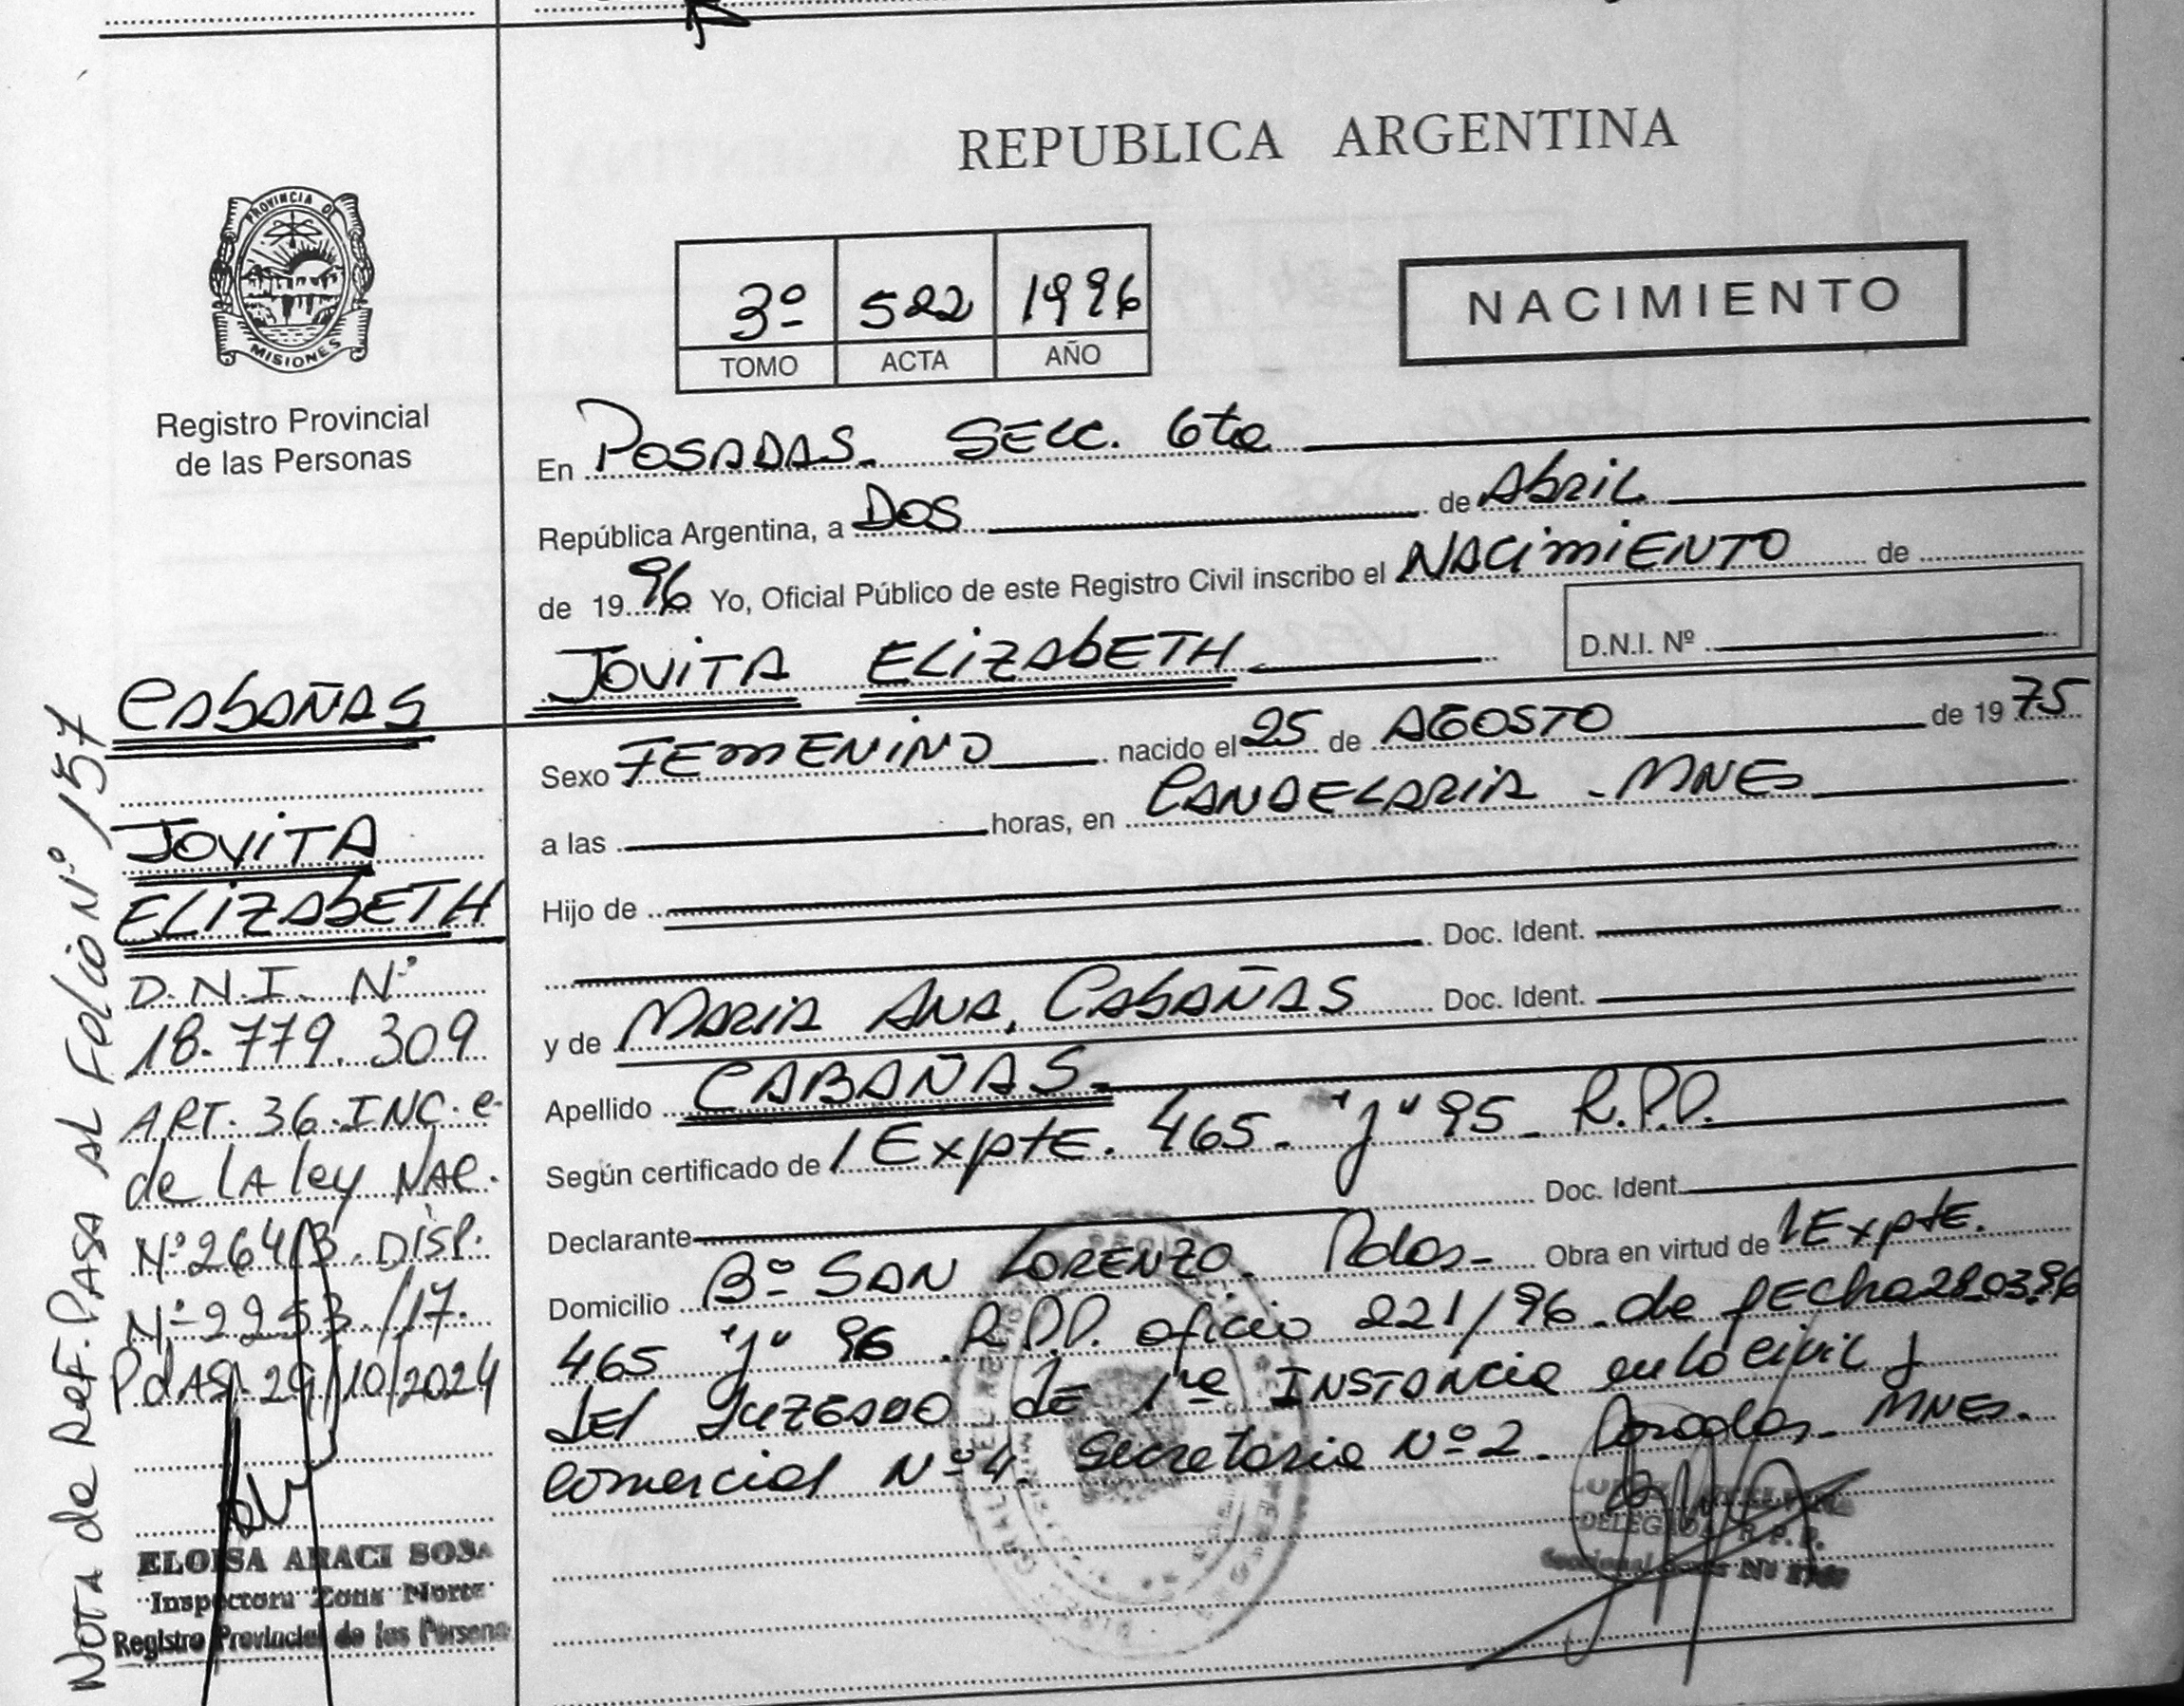 REPUBLICA ARGENTINA
PROVINCIA DE
MISIONES
Registro Provincial
de las Personas
3º 522 1996
TOMO ACTA AÑO
NACIMIENTO
En POSADAS- SECC. 6ta
República Argentina, a DOS de Abril
de 1996 Yo, Oficial Público de este Registro Civil inscribo el NACIMIENTO de
JOVITA ELIZABETH
D.N.I. Nº
Sexo FEMENINO nacido el 25 de AGOSTO de 1975
a las horas, en CANDELARIA - MNES
Hijo de
Doc. Ident.
y de MARIA ANA, CABAÑAS Doc. Ident.
Apellido CABAÑAS-
Según certificado de / Expte. 465- "J" 95- R.P.P.
Declarante Doc. Ident.
Domicilio Bº SAN LORENZO- Pdas- Obra en virtud de / Expte.
465 "J" 96 R.P.P. oficio 221/96 de fecha 28.03.96
del Juzgado de 1ra INSTANCIA en lo civil y
comercial Nº 4. Secretaria Nº 2- Posadas- MNES.
DELEGADA R.P.P.
CABAÑAS
JOVITA
ELIZABETH
D.N.I. Nº
18.779.309
ART. 36. INC. e-
de LA ley NAC.
Nº 26413. DISP.
Nº 2253/17.
PdAS. 29/10/2024
ELOISA ARACI SOSA
Inspectora Zona Norte
Registro Provincial de las Persona
NOTA de REF. PASA AL FOLIO Nº 157